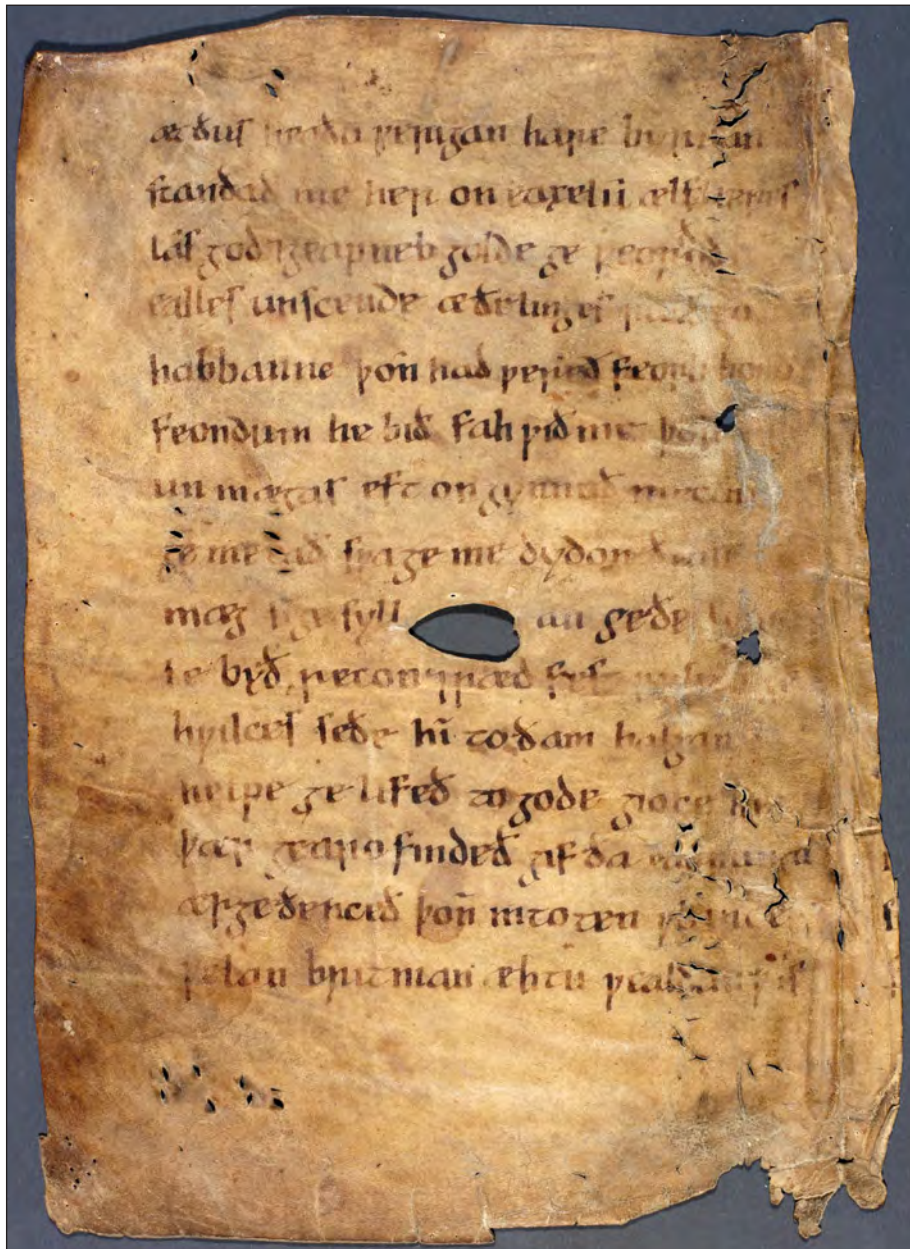 æt ðus heaðu ƿerigan hare byrnan
standað me her on eaxelū ælfheres
laf god ⁊ geapneb golde ge ƿeorðod
ealles unscende æðelinges reaf to
habbanne þoñ had ƿereð feorh hord
feondum he bið fah ƿið me þoñ
un mægas eft on gynnað mecum
ge metað sƿa ge me dydon ðeah
mæg sige syllan seðe symle
byð recon ⁊ ræd fest ryhta ge
hƿilces seðe hī to ðam halgan
helpe ge lifeð to gode gioce he
þær gearo findeð gif ða earnunga
ær geðenceð þoñ mtoten ƿlance
ƿelan britnian æhtū ƿealdan þ is